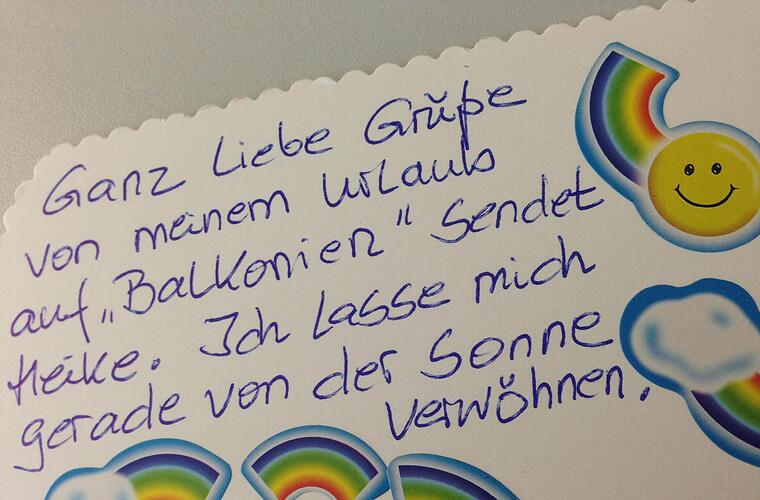 Ganz Liebe Grüße
von meinem Urlaub
auf „Balkonien" sendet
Heike. Ich lasse mich
gerade von der Sonne
verwöhnen.